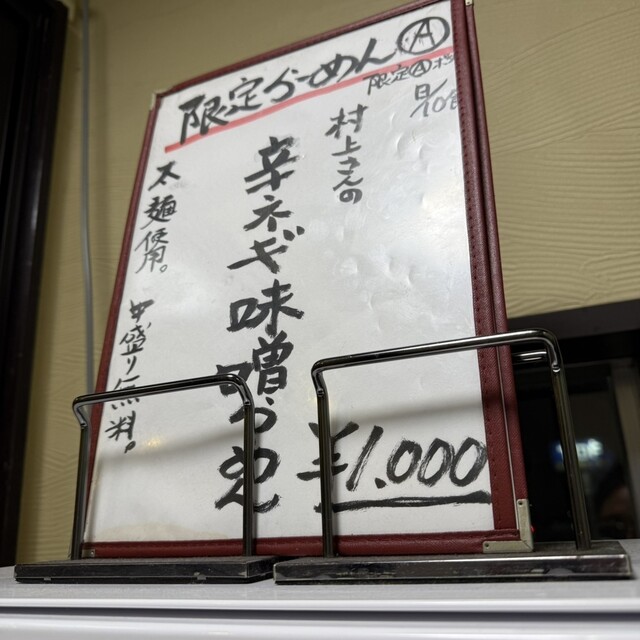 限定らーめんⒶ
限定Ⓐボ
日/10食
村上さんの
辛ネギ味噌らーめん
¥1.000
太麺使用。中盛り無料。